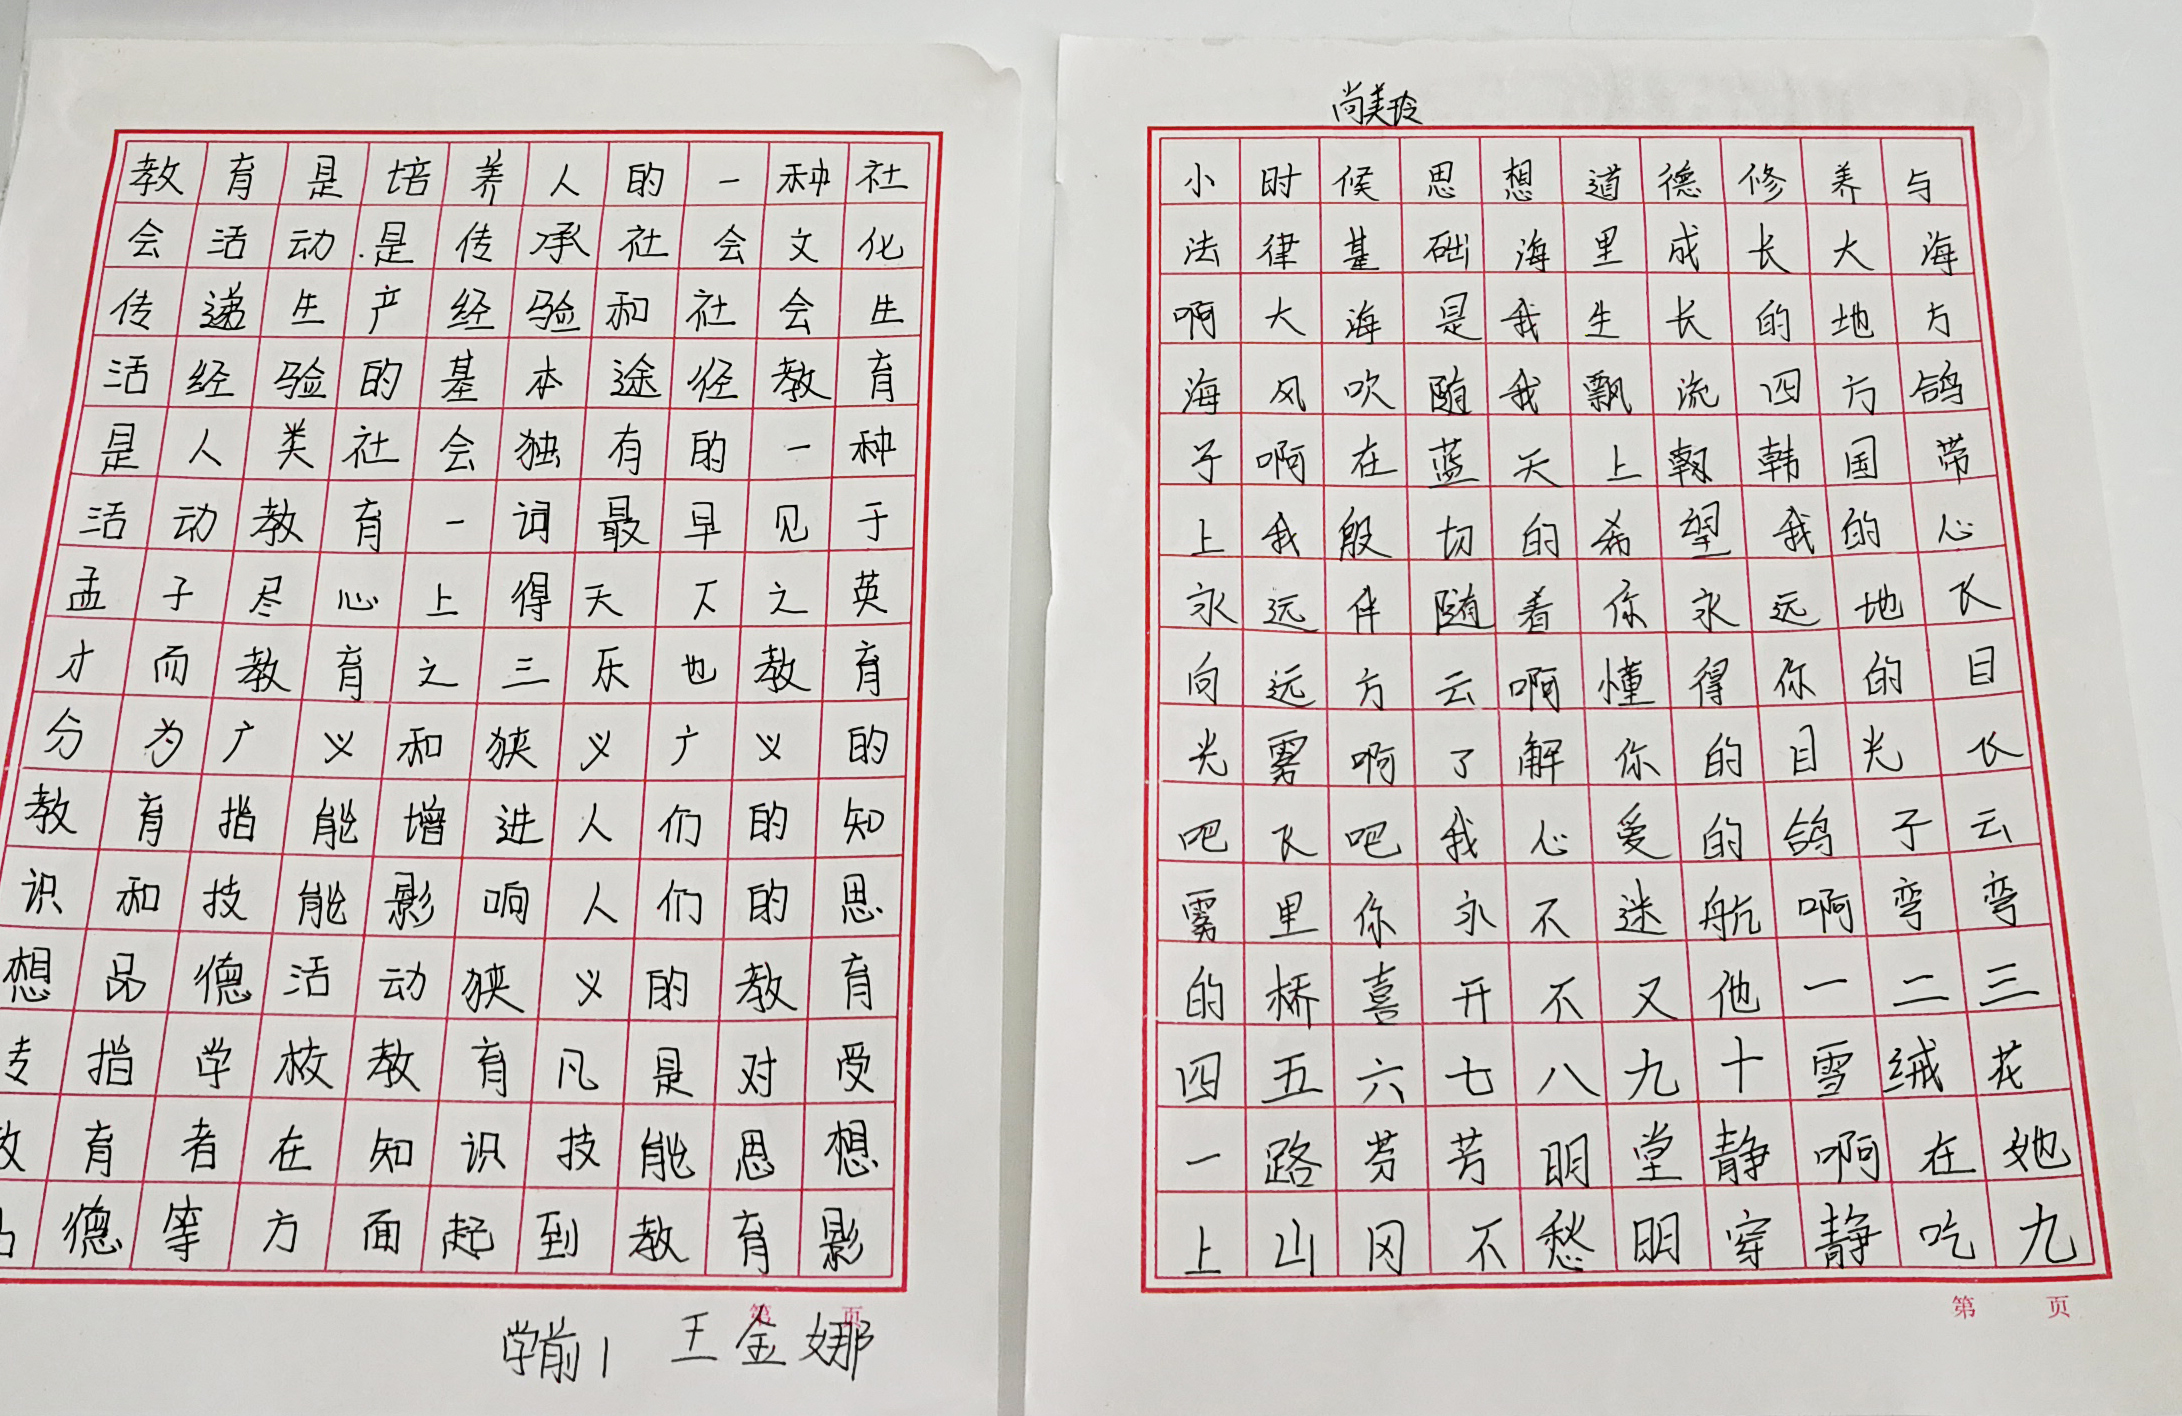 教育是培养人的一种社
会活动.是传承社会文化
传递生产经验和社会生
活经验的基本途径教育
是人类社会独有的一种
活动教育一词最早见于
孟子尽心上得天下之英
才而教育之三乐也教育
分为广义和狭义广义的
教育指能增进人们的知
识和技能影响人们的思
想品德活动狭义的教育
专指学校教育凡是对受
教育者在知识技能思想
品德等方面起到教育影
第 页
学前1 王金娜
尚美玲
小时候思想道德修养与
法律基础海里成长大海
啊大海是我生长的地方
海风吹随我飘流四方鸽
子啊在蓝天上翱韩国带
上我殷切的希望我的心
永远伴随着你永远地飞
向远方云啊懂得你的目
光雾啊了解你的目光飞
吧飞吧我心爱的鸽子云
雾里你永不迷航啊弯弯
的桥喜开不又他一二三
四五六七八九十雪绒花
一路芬芳明堂静啊在她
上山冈不愁明穿静吃九
第 页